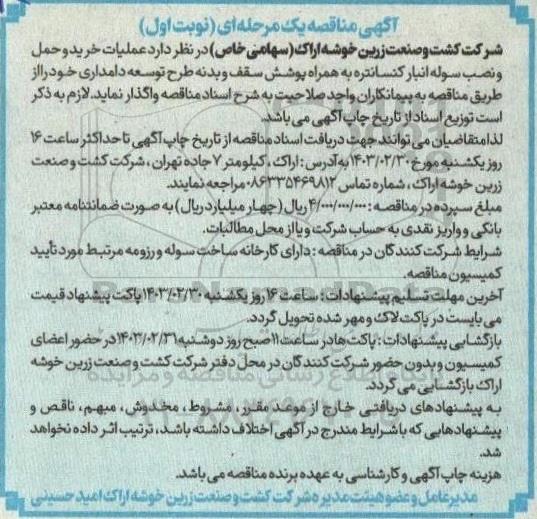 آگهی مناقصه یک مرحله‌ای (نوبت اول)
شرکت کشت و صنعت زرین خوشه اراک (سهامی خاص) در نظر دارد عملیات خرید و حمل
و نصب سوله انبار کنسانتره به همراه پوشش سقف و بدنه طرح توسعه دامداری خود را از
طریق مناقصه به پیمانکاران واجد صلاحیت به شرح اسناد مناقصه واگذار نماید. لازم به ذکر
است توزیع اسناد از تاریخ چاپ آگهی می باشد.
لذا متقاضیان می توانند جهت دریافت اسناد مناقصه از تاریخ چاپ آگهی تا حداکثر ساعت ۱۶
روز یکشنبه مورخ ۱۴۰۳/۰۲/۳۰ به آدرس : اراک ، کیلومتر ۷ جاده تهران ، شرکت کشت و صنعت
زرین خوشه اراک ، شماره تماس ۰۸۶۳۳۵۴۶۹۸۱۲ مراجعه نمایند.
مبلغ سپرده در مناقصه : ۴/۰۰۰/۰۰۰/۰۰۰ ریال (چهار میلیارد ریال) به صورت ضمانتنامه معتبر
بانکی و واریز نقدی به حساب شرکت و یا از محل مطالبات.
شرایط شرکت کنندگان در مناقصه : دارای کارخانه ساخت سوله و رزومه مرتبط مورد تأیید
کمیسیون مناقصه.
آخرین مهلت تسلیم پیشنهادات : ساعت ۱۶ روز یکشنبه ۱۴۰۳/۰۲/۳۰ پاکت پیشنهاد قیمت
می بایست در پاکت لاک و مهر شده تحویل گردد.
بازگشایی پیشنهادات : پاکت ها در ساعت ۱۱ صبح روز دوشنبه ۱۴۰۳/۰۲/۳۱ در حضور اعضای
کمیسیون و بدون حضور شرکت کنندگان در محل دفتر شرکت کشت و صنعت زرین خوشه
اراک بازگشایی می گردد.
به پیشنهادهای دریافتی خارج از موعد مقرر ، مشروط ، مخدوش ، مبهم ، ناقص و
پیشنهادهایی که با شرایط مندرج در آگهی اختلاف داشته باشد ، ترتیب اثر داده نخواهد
شد.
هزینه چاپ آگهی و کارشناسی به عهده برنده مناقصه می باشد.
مدیرعامل و عضو هیئت مدیره شرکت کشت و صنعت زرین خوشه اراک امید حسینی